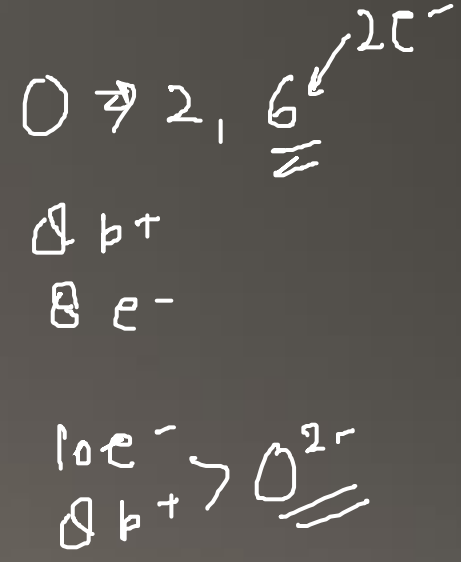 2e⁻
O → 2, 6
8 p+
8 e⁻
10e⁻
8 p+ > O²⁻